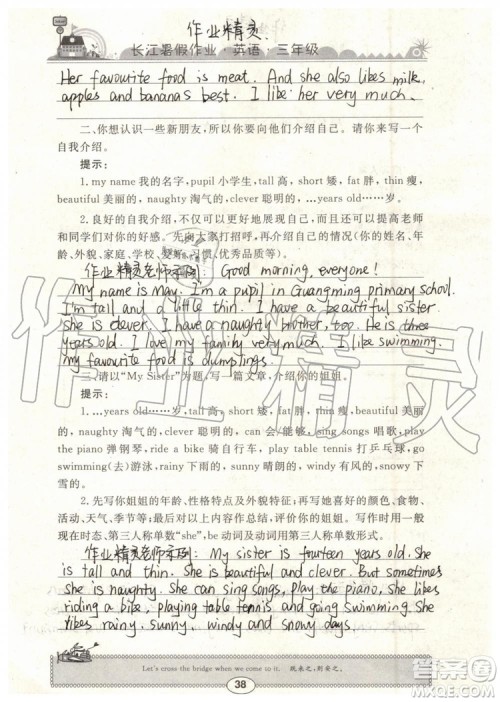 作业精灵:
长江暑假作业·英语·三年级
Her favourite food is meat. And she also likes milk,
apples and bananas best. I like her very much.
二、你想认识一些新朋友,所以你要向他们介绍自己。请你来写一个
自我介绍。
提示:
1. my name 我的名字,pupil 小学生,tall 高,short 矮,fat 胖,thin 瘦,
beautiful 美丽的,naughty 淘气的,clever 聪明的,…years old……岁。
2. 良好的自我介绍,不仅可以更好地展现自己,而且能提高老师
和同学们对你的好感。先向大家打招呼,再介绍自己的情况(你的姓名、年
龄、外貌、家庭、学校、爱好、习惯、优秀品质等)。
作业精灵老师示例: Good morning, everyone!
My name is May. I'm a pupil in Guangming primary school.
I'm tall and a little thin. I have a beautiful sister.
she is clever. I have a naughty brother, too. He is three
years old. I love my family very much. I like swimming.
my favourite food is dumplings.
三、请以“My Sister”为题,写一篇文章,介绍你的姐姐。
提示:
1. …years old……岁,tall 高,short 矮,fat 胖,thin 瘦,beautiful 美丽
的,naughty 淘气的,clever 聪明的,can 会/能够,sing songs 唱歌,play
the piano 弹钢琴,ride a bike 骑自行车,play table tennis 打乒乓球,go
swimming(去)游泳,rainy 下雨的,sunny 晴朗的,windy 有风的,snowy 下
雪的。
2. 先写你姐姐的年龄、性格特点及外貌,再写她喜好的颜色、食物、
活动、天气、季节等;最后对以上内容作总结,评价你的姐姐。写作时用一般
现在时态、第三人称单数“she”,be 动词及动词用第三人称单数形式。
作业精灵老师示例: My sister is fourteen years old. She
is tall and thin. She is beautiful and clever. But sometimes
she is naughty. She can sing songs, play the piano. She likes
riding a bike, playing table tennis and going swimming. She
likes rainy, sunny, windy and snowy days.
Let's cross the bridge when we come to it. 既来之,则安之。
38
作业精灵
答案圈
MXQE.COM